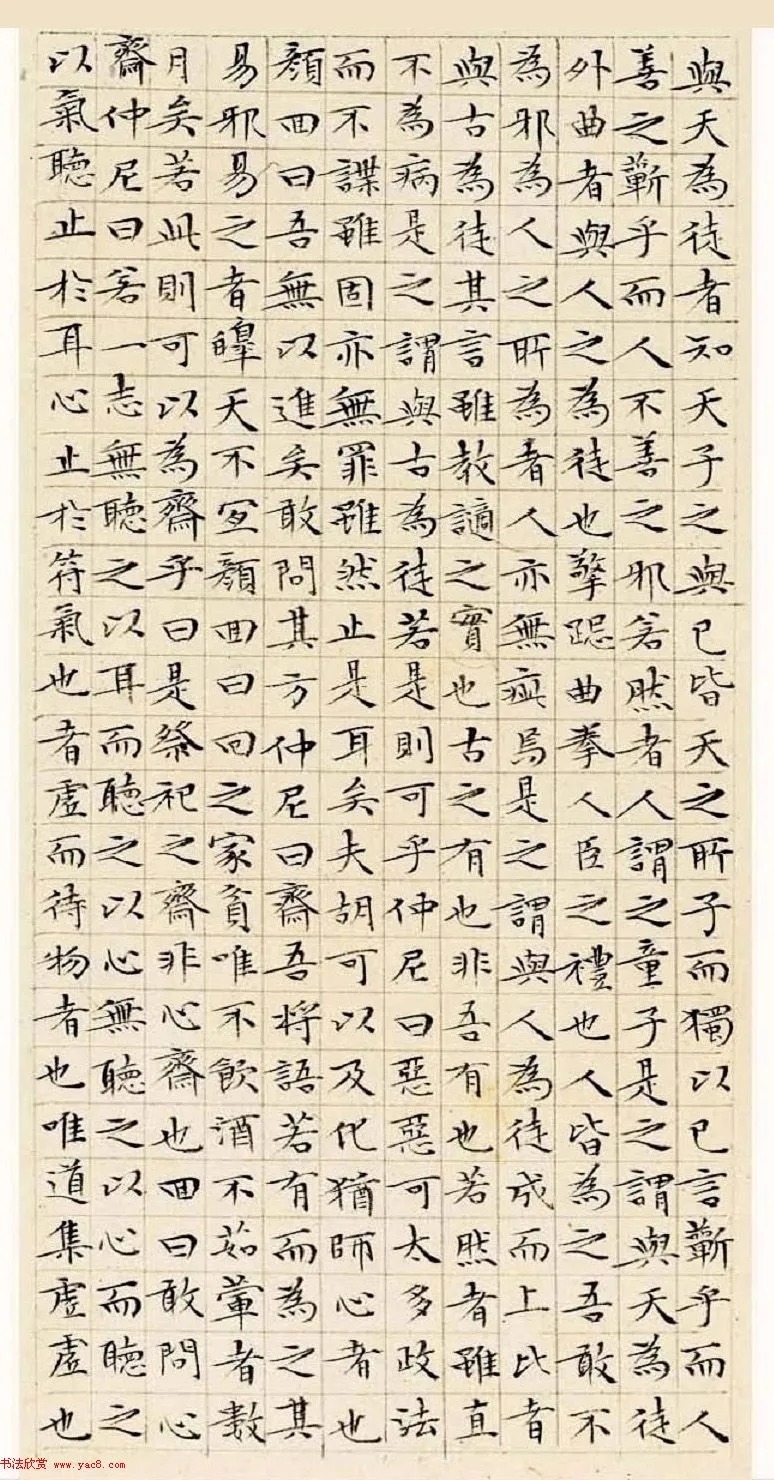 與天為徒者知天子之與已皆天之所子而獨以已言蘄乎而人
善之蘄乎而人不善之邪若然者人謂之童子是之謂與天為徒
外曲者與人之為徒也擎跽曲拳人臣之禮也人皆為之吾敢不
為邪為人之所為者人亦無疵焉是之謂與人為徒成而上比者
與古為徒其言雖教讁之實也古之有也非吾有也若然者雖直
不為病是之謂與古為徒若是則可乎仲尼曰惡惡可太多政法
而不諜雖固亦無罪雖然止是耳矣夫胡可以及化猶師心者也
顏回曰吾無以進矣敢問其方仲尼曰齋吾將語若有而為之其
易邪易之者皞天不宜顏回曰回之家貧唯不飲酒不茹葷者數
月矣若此則可以為齋乎曰是祭祀之齋非心齋也回曰敢問心
齋仲尼曰若一志無聽之以耳而聽之以心無聽之以心而聽之
以氣聽止於耳心止於符氣也者虛而待物者也唯道集虛虛也
书法欣赏 www.yac8.com